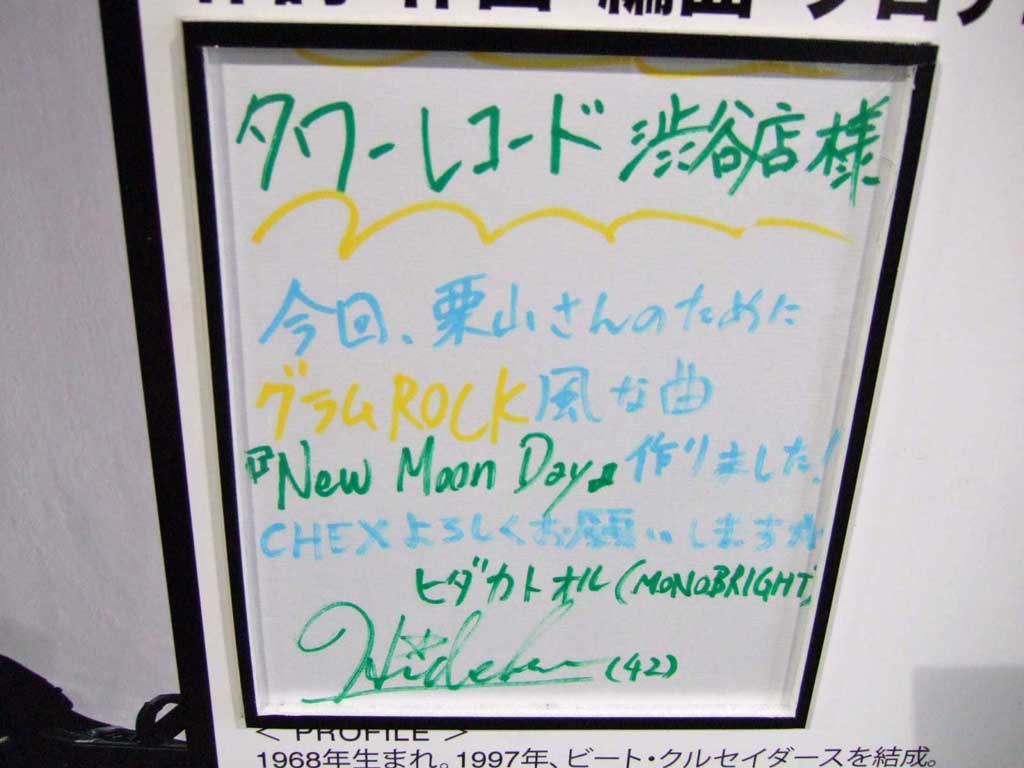 タワーレコード 渋谷店様
今回、栗山さんのために
グラムROCK風な曲
『New Moon Day』作りました!
CHEXよろしくお願いします
ヒダカトオル(MONOBRIGHT)
(42)
< PROFILE >
1968年生まれ。1997年、ビート・クルセイダースを結成。